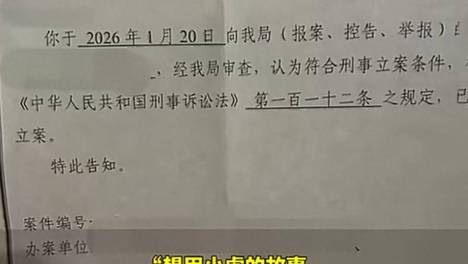 你于 2026 年 1 月 20 日 向我局（报案、控告、举报）的
，经我局审查，认为符合刑事立案条件，
《中华人民共和国刑事诉讼法》 第一百一十二条 之规定，已
立案。
特此告知。
案件编号
办案单位
“想用小虎的故事